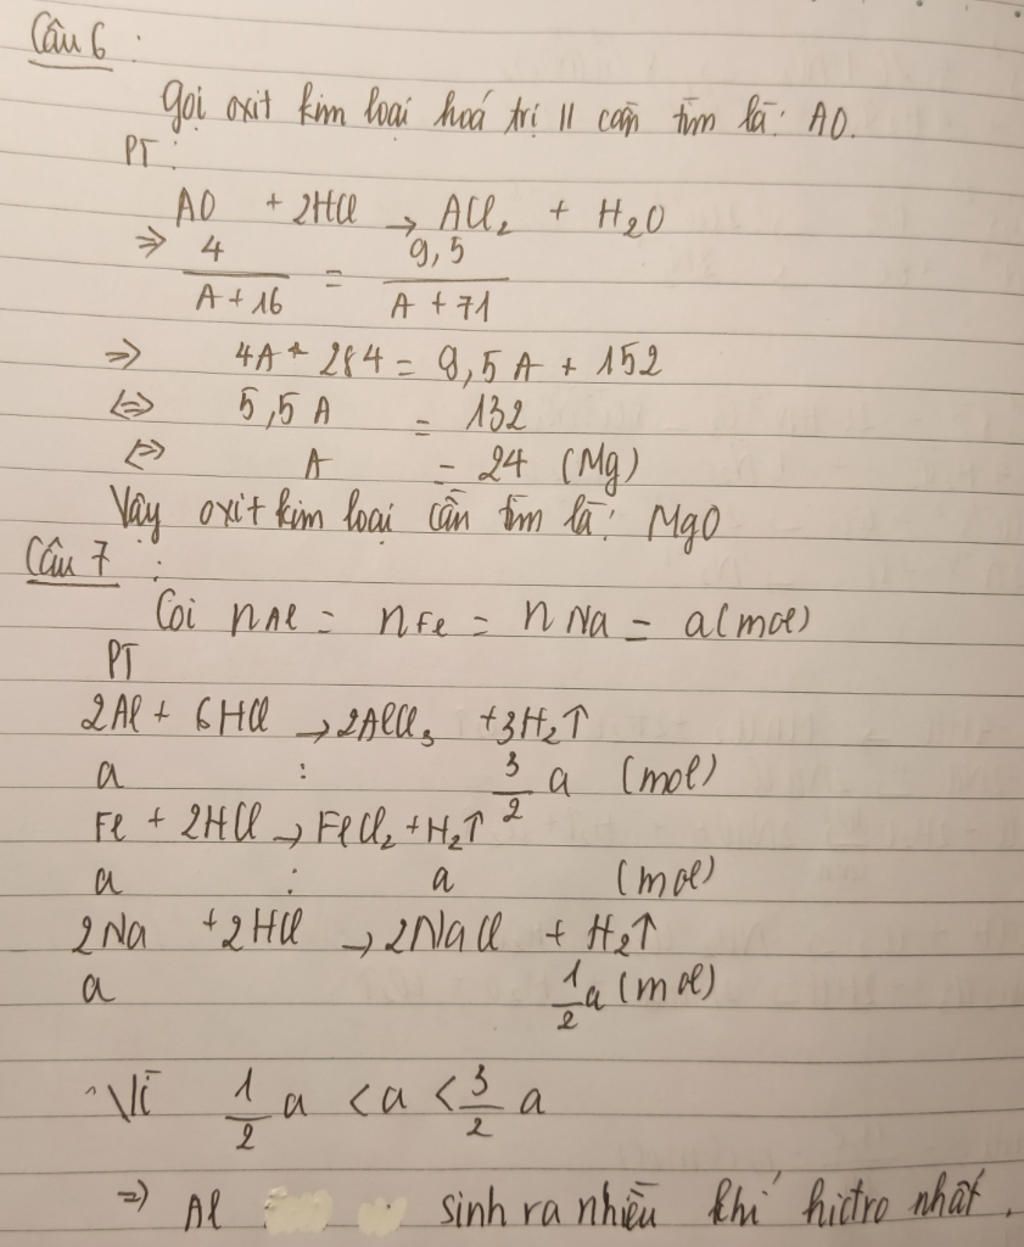 Câu 6 :
Gọi oxit kim loại hoá trị II cần tìm là: AO.
PT :
AO + 2HCl → ACl₂ + H₂O
=> 4/(A + 16) = 9,5/(A + 71)
=> 4A + 284 = 9,5A + 152
<=> 5,5A = 132
<=> A = 24 (Mg)
Vậy oxit kim loại cần tìm là: MgO
Câu 7 :
Coi nAl = nFe = nNa = a(mol)
PT
2Al + 6HCl → 2AlCl₃ + 3H₂↑
a : 3/2 a (mol)
Fe + 2HCl → FeCl₂ + H₂↑
a : a (mol)
2Na + 2HCl → 2NaCl + H₂↑
a 1/2 a (mol)
Vì 1/2 a < a < 3/2 a
=> Al sinh ra nhiều khí hiđro nhất.